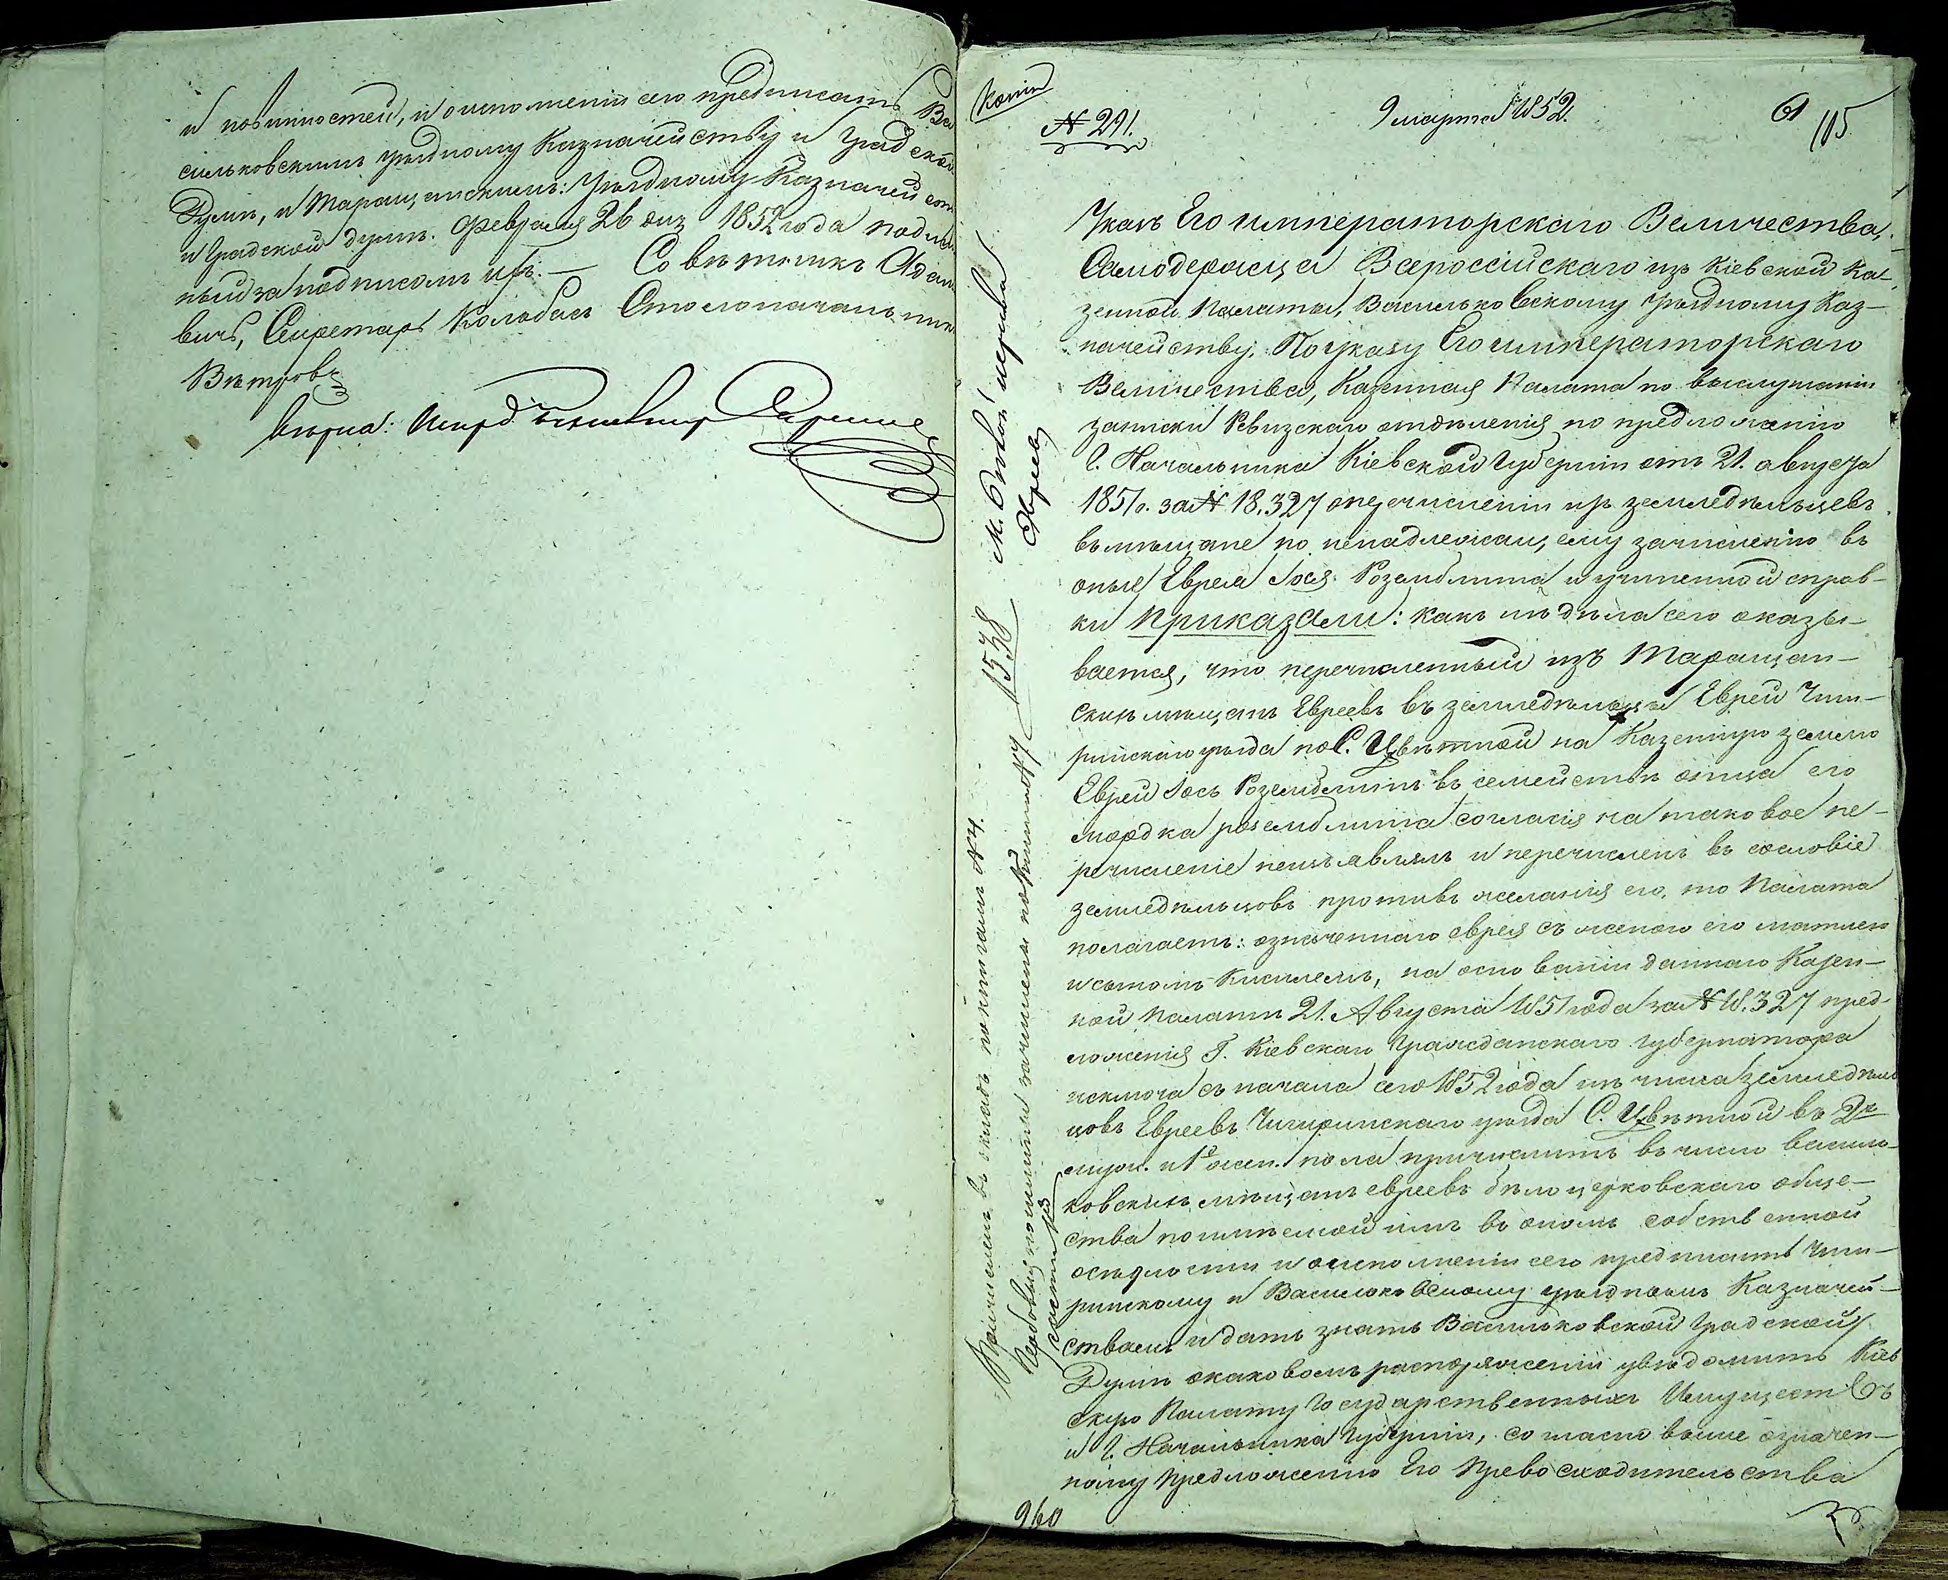 и повинностей, и о исполненіи сего предписать Ва
сильковскимъ уѣздному Казначейству и Градской
Думѣ, и Таращанскимъ: Уѣздному Казначейст
и Градской думѣ. Февраля 26 дня 1852 года подлин
ный за подписомъ ихъ. — Совѣтникъ Адам
вичъ, Секретарь Кольбасъ Столоначальник
Вѣтровъ
вѣрна:
Копія
№ 291.
9 марта 1852.
61
115
Указъ Его императорскаго Величества,
Самодержца Всероссійскаго изъ Кіевской Ка-
зенной Палаты, Васильковскому уѣздному Каз-
начейству. По указу Его императорскаго
Величества, Казенная Палата по выслушаніи
записки Ревизскаго отдѣленія по предложенію
Г. Начальника Кіевской Губерніи отъ 21. августа
1851 г. за № 18,327 о перечисленіи изъ земледѣльцевъ
въ мѣщане по ненадлежащему зачисленію въ
оные Еврея Іося Розенблита и учиненной справ-
ки Приказали: какъ изъ дѣла сего оказы-
вается, что перечисленный изъ Таращан-
скихъ мѣщанъ Евреевъ въ земледѣльцы Еврей Чиги-
ринскаго уѣзда по С. Цвѣтной на Казенную землю
Еврей Іось Розенблитъ въ семействѣ отца его
Мордка розенблита согласія на таковое пе-
речисленіе неизъявлялъ и перечисленъ въ сословіе
земледѣльцовъ противъ желанія его, то Палата
полагаетъ: означеннаго еврея съ женою его
и сыномъ на основаніи даннаго Казен-
ной Палатѣ 21. Августа 1851 года за № 18.327 пред-
ложенія Г. Кіевскаго Гражданскаго губернатора
исключа съ начала сего 1852 года изъ числа земледѣль
цовъ Евреевъ Чигиринскаго уѣзда С. Цвѣтной въ 2х
муж. и 1й жен. пола причислить въ число василь-
ковскихъ мѣщанъ евреевъ бѣлоцерковскаго обще-
ства по имѣемой имъ въ ономъ собственной
осѣдлости и о исполненіи сего предписать Чиги-
ринскому и Васильковскому уѣзднымъ Казначей-
ствамъ и дать знать Васильковской Градской
Думѣ о каковомъ распоряженіи увѣдомить Кіев
скую Палату Государственныхъ Имуществъ
и Г. Начальника Губерніи, согласно выше означен-
ному предложенію Его Превосходительства
м. Бѣлой церкви
Евреевъ
1538
Причисленъ въ окладъ по
960